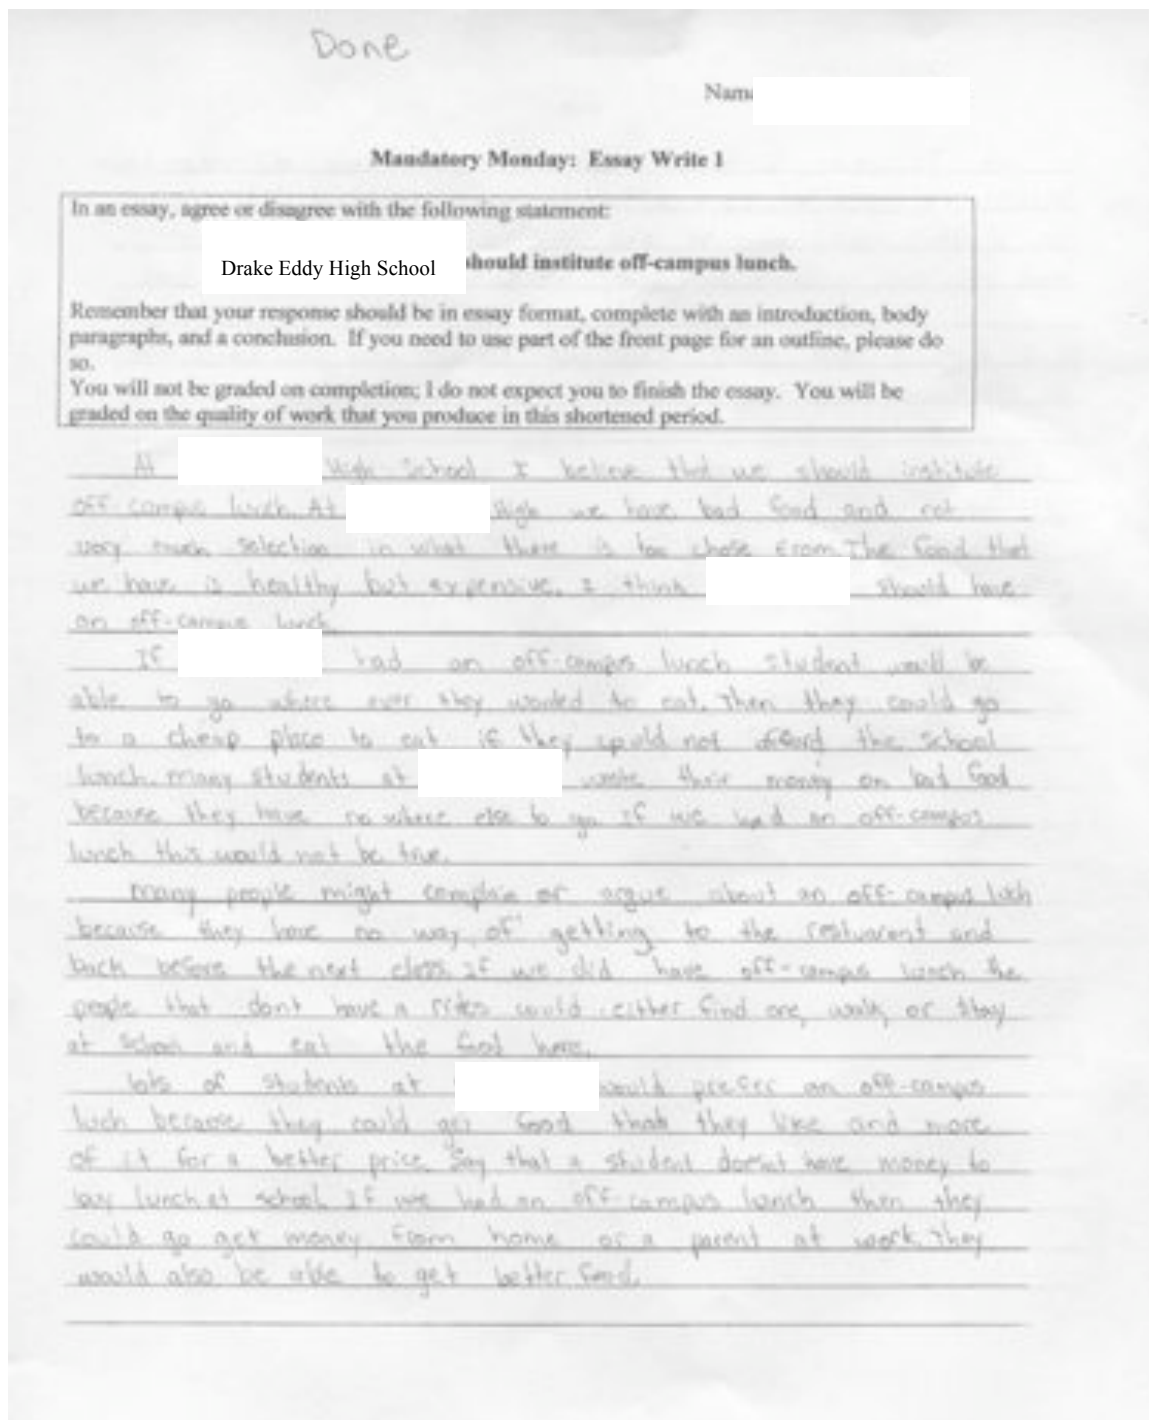 Done
Name
Mandatory Monday: Essay Write 1
In an essay, agree or disagree with the following statement:
Drake Eddy High School should institute off-campus lunch.
Remember that your response should be in essay format, complete with an introduction, body
paragraphs, and a conclusion. If you need to use part of the front page for an outline, please do
so.
You will not be graded on completion; I do not expect you to finish the essay. You will be
graded on the quality of work that you produce in this shortened period.
At High School I believe that we should institute
off-campus lunch. At High we have bad food and not
very much selection in what there is too chose from. The food that
we have is healthy but expensive. I think should have
an off-campus lunch.
If had an off-campus lunch student would be
able to go where ever they wanted to eat. Then they could go
to a cheap place to eat if they could not afford the school
lunch. many students at waste their money on bad food
because they have no where else to go if we had an off-campus
lunch this would not be true.
many people might complain or argue about an off-campus luch
because they have no way of getting to the restuarent and
back before the next class. If we did have off-campus lunch the
people that dont have a rides could either find one, walk, or stay
at school and eat the food here.
lots of students at would prefer an off-campus
luch because they could get food that they like and more
of it for a better price. Say that a student doesnt have money to
buy lunch at school. If we had an off-campus lunch then they
could go get money from home or a parent at work. They
would also be able to get better food.